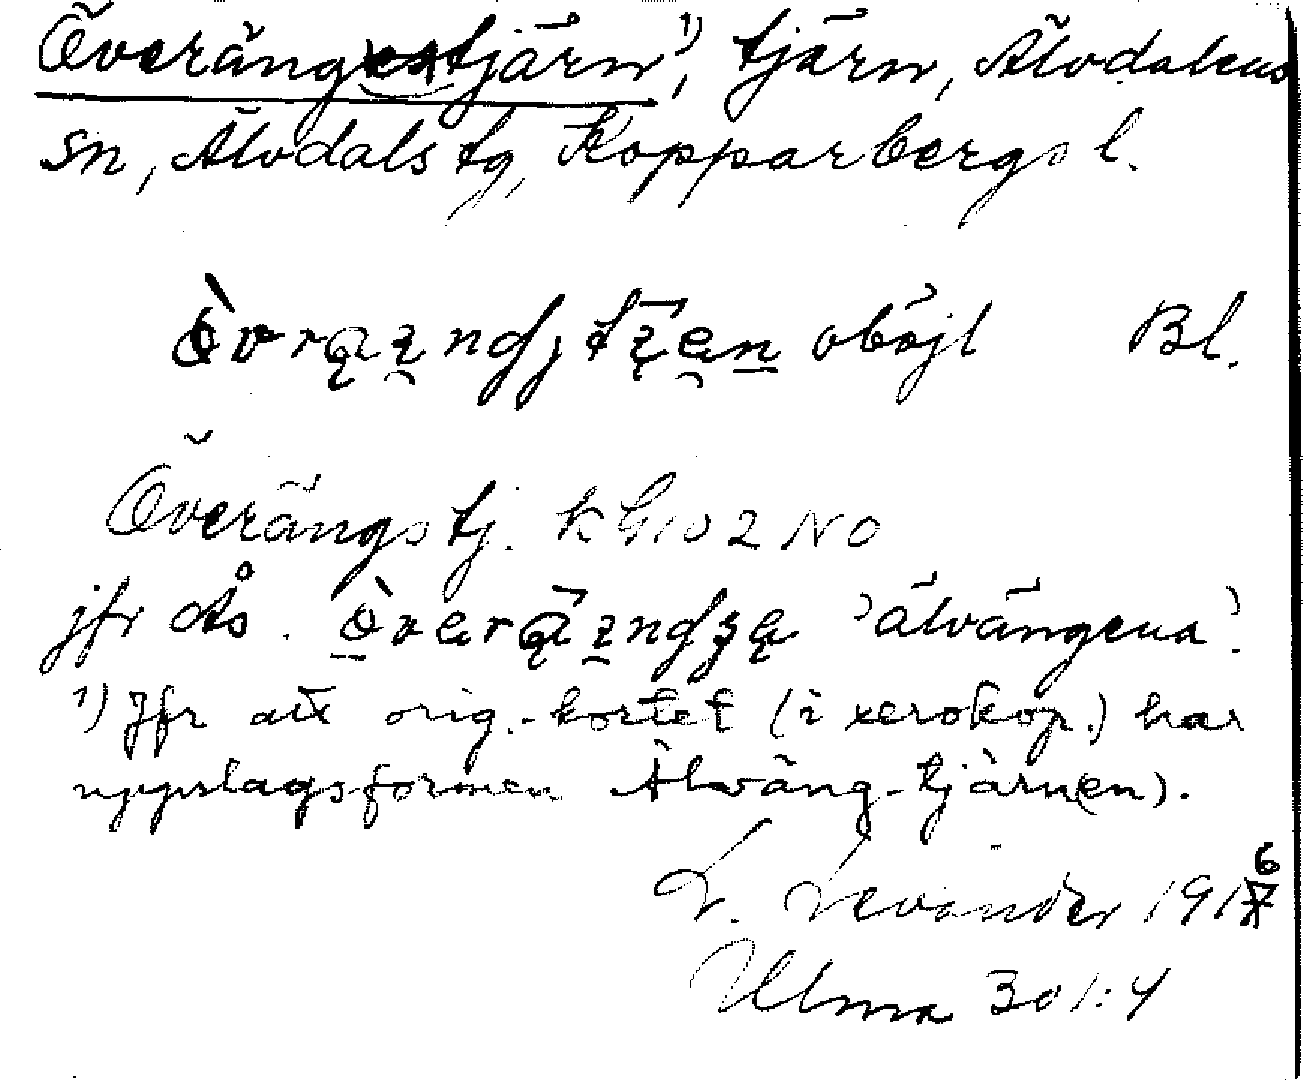 Överängtjärn¹⁾, tjärn, Älvdalens
sn, Älvdals tg, Kopparbergs l.
oböjl Bl.
Överängstj. kG102 NO
jfr Ås. 'älvängena'.
¹⁾ Jfr att orig.-kortet (i xerokop.) har
uppslagsformen Älväng-tjärn(en).
L. Levander 1916
Ulma 301:4